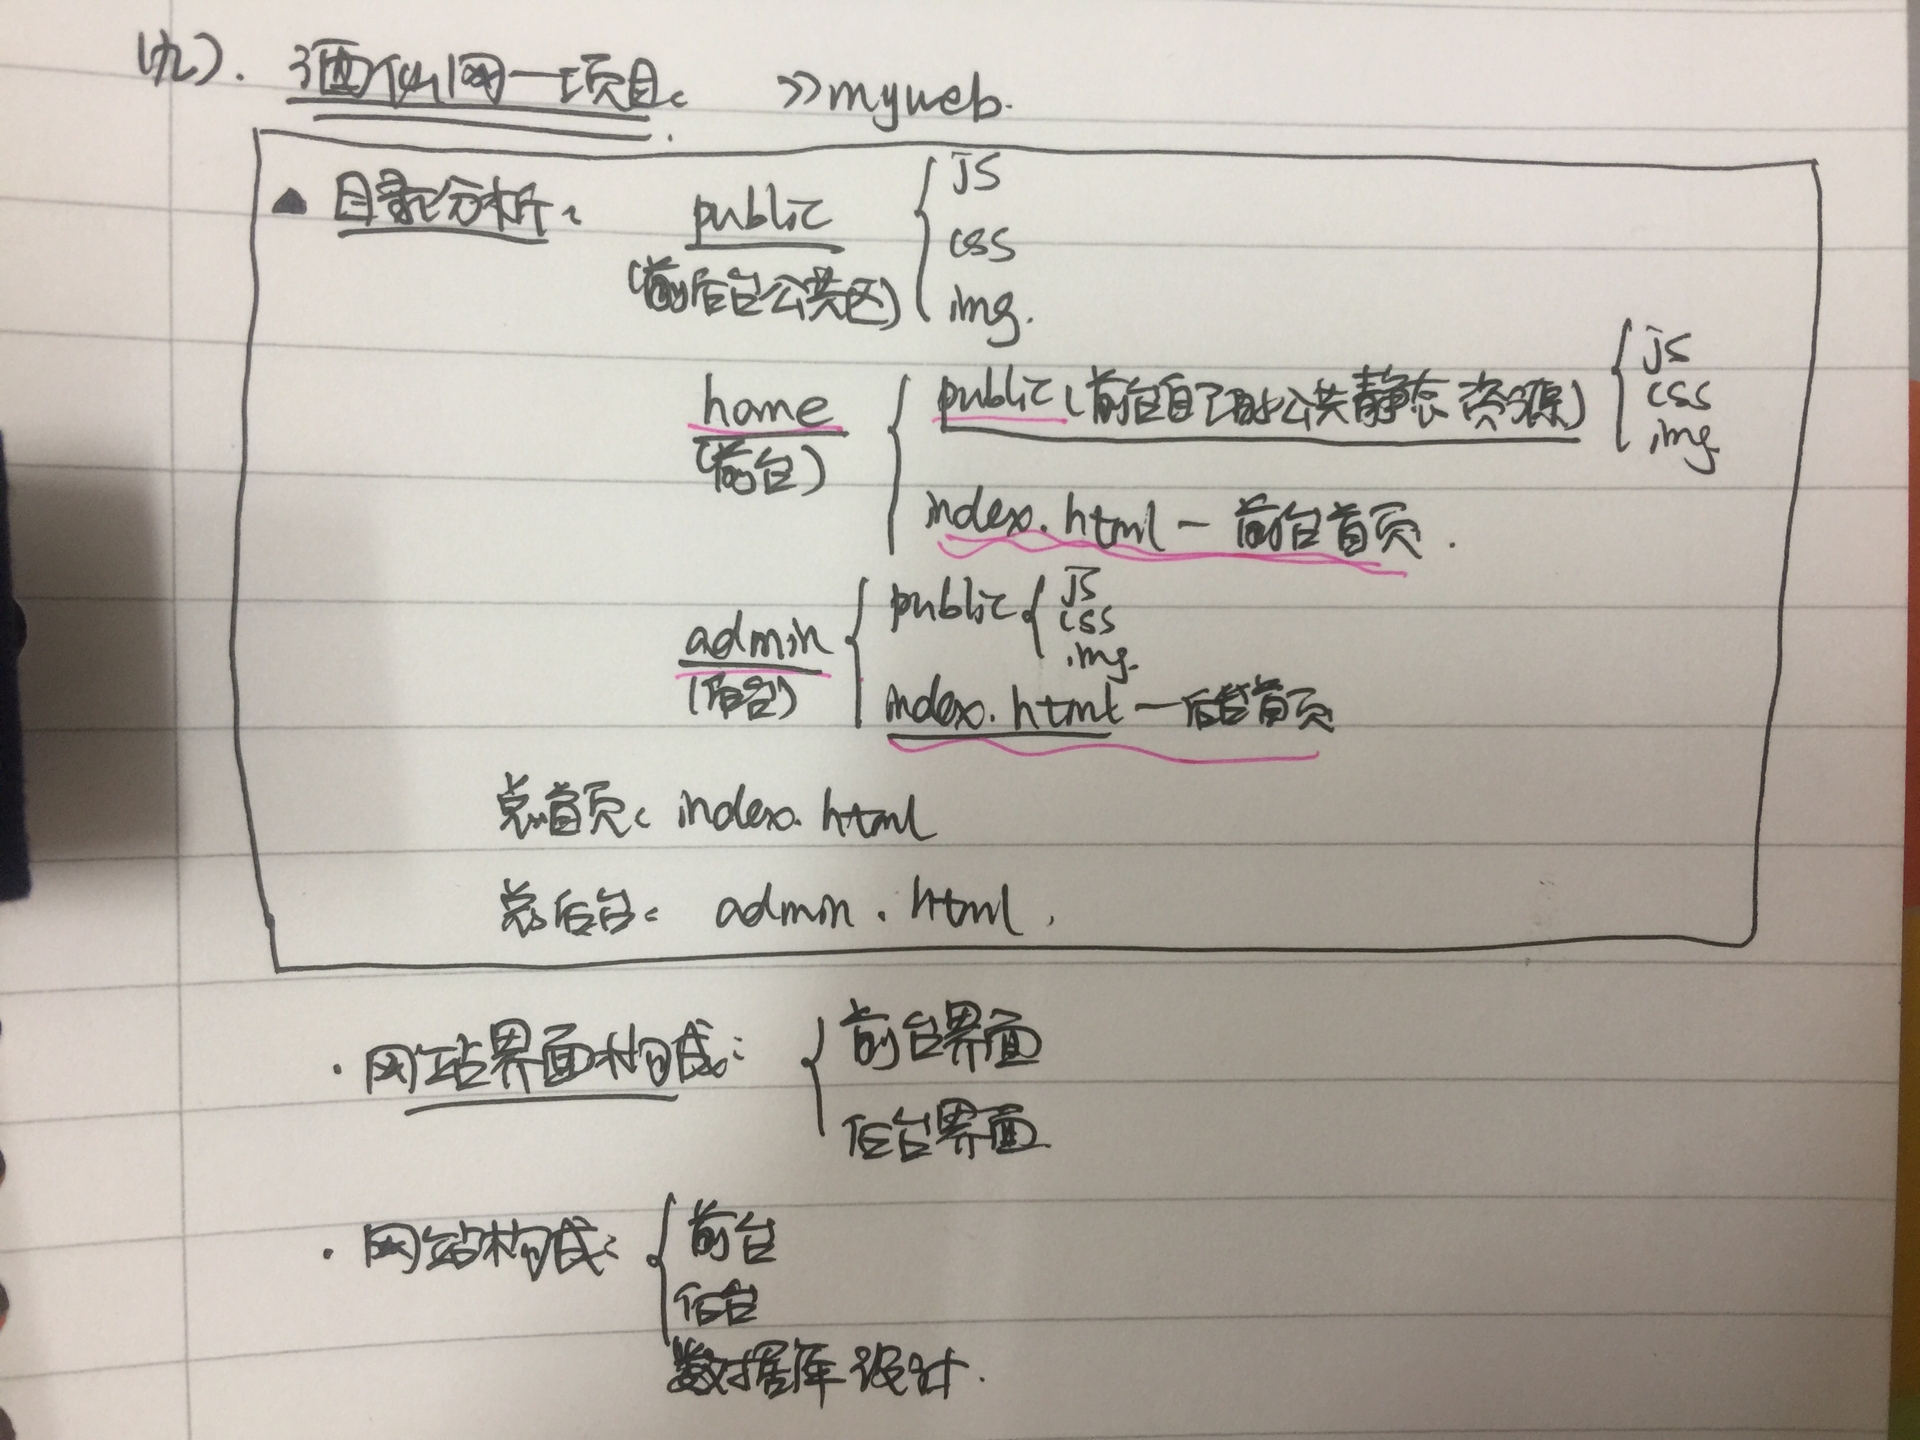 (九). 酒仙网一项目: >>myweb.
▲ 目录分析: public { js
css
(前后台公共区) img.
home { public (前台自己的公共静态资源) { js
css
img
(前台)
index.html — 前台首页.
admin { public { js
css
img.
(后台) index.html — 后台首页
总首页: index.html
总后台: admin.html.
· 网站界面构成: { 前台界面
后台界面
· 网站构成: { 前台
后台
数据库设计.